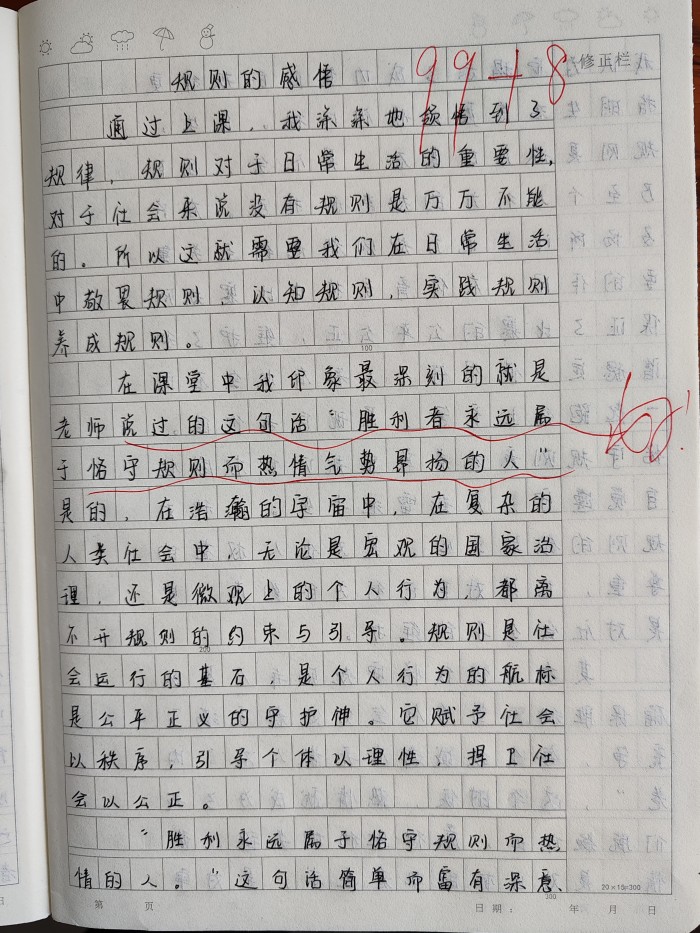 99+8
修正栏
规则的感悟
通过上课，我深深地领悟到了
规律、规则对于日常生活的重要性，
对于社会来说没有规则是万万不能
的。所以这就需要我们在日常生活
中敬畏规则、认知规则、实践规则
养成规则。
100
在课堂中我印象最深刻的就是
老师说过的这句话"胜利者永远属
于恪守规则而热情气势昂扬的人"
是的，在浩瀚的宇宙中，在复杂的
人类社会中，无论是宏观的国家治
理，还是微观上的个人行为，都离
不开规则的约束与引导。规则是社
200
会运行的基石，是个人行为的航标
是公平正义的守护神。它赋予社会
以秩序，引导个体以理性，捍卫社
会以公正。
"胜利永远属于恪守规则而热
情的人。"这句话简单而富有深意、
20×15=300
300
第 页 日期： 年 月 日